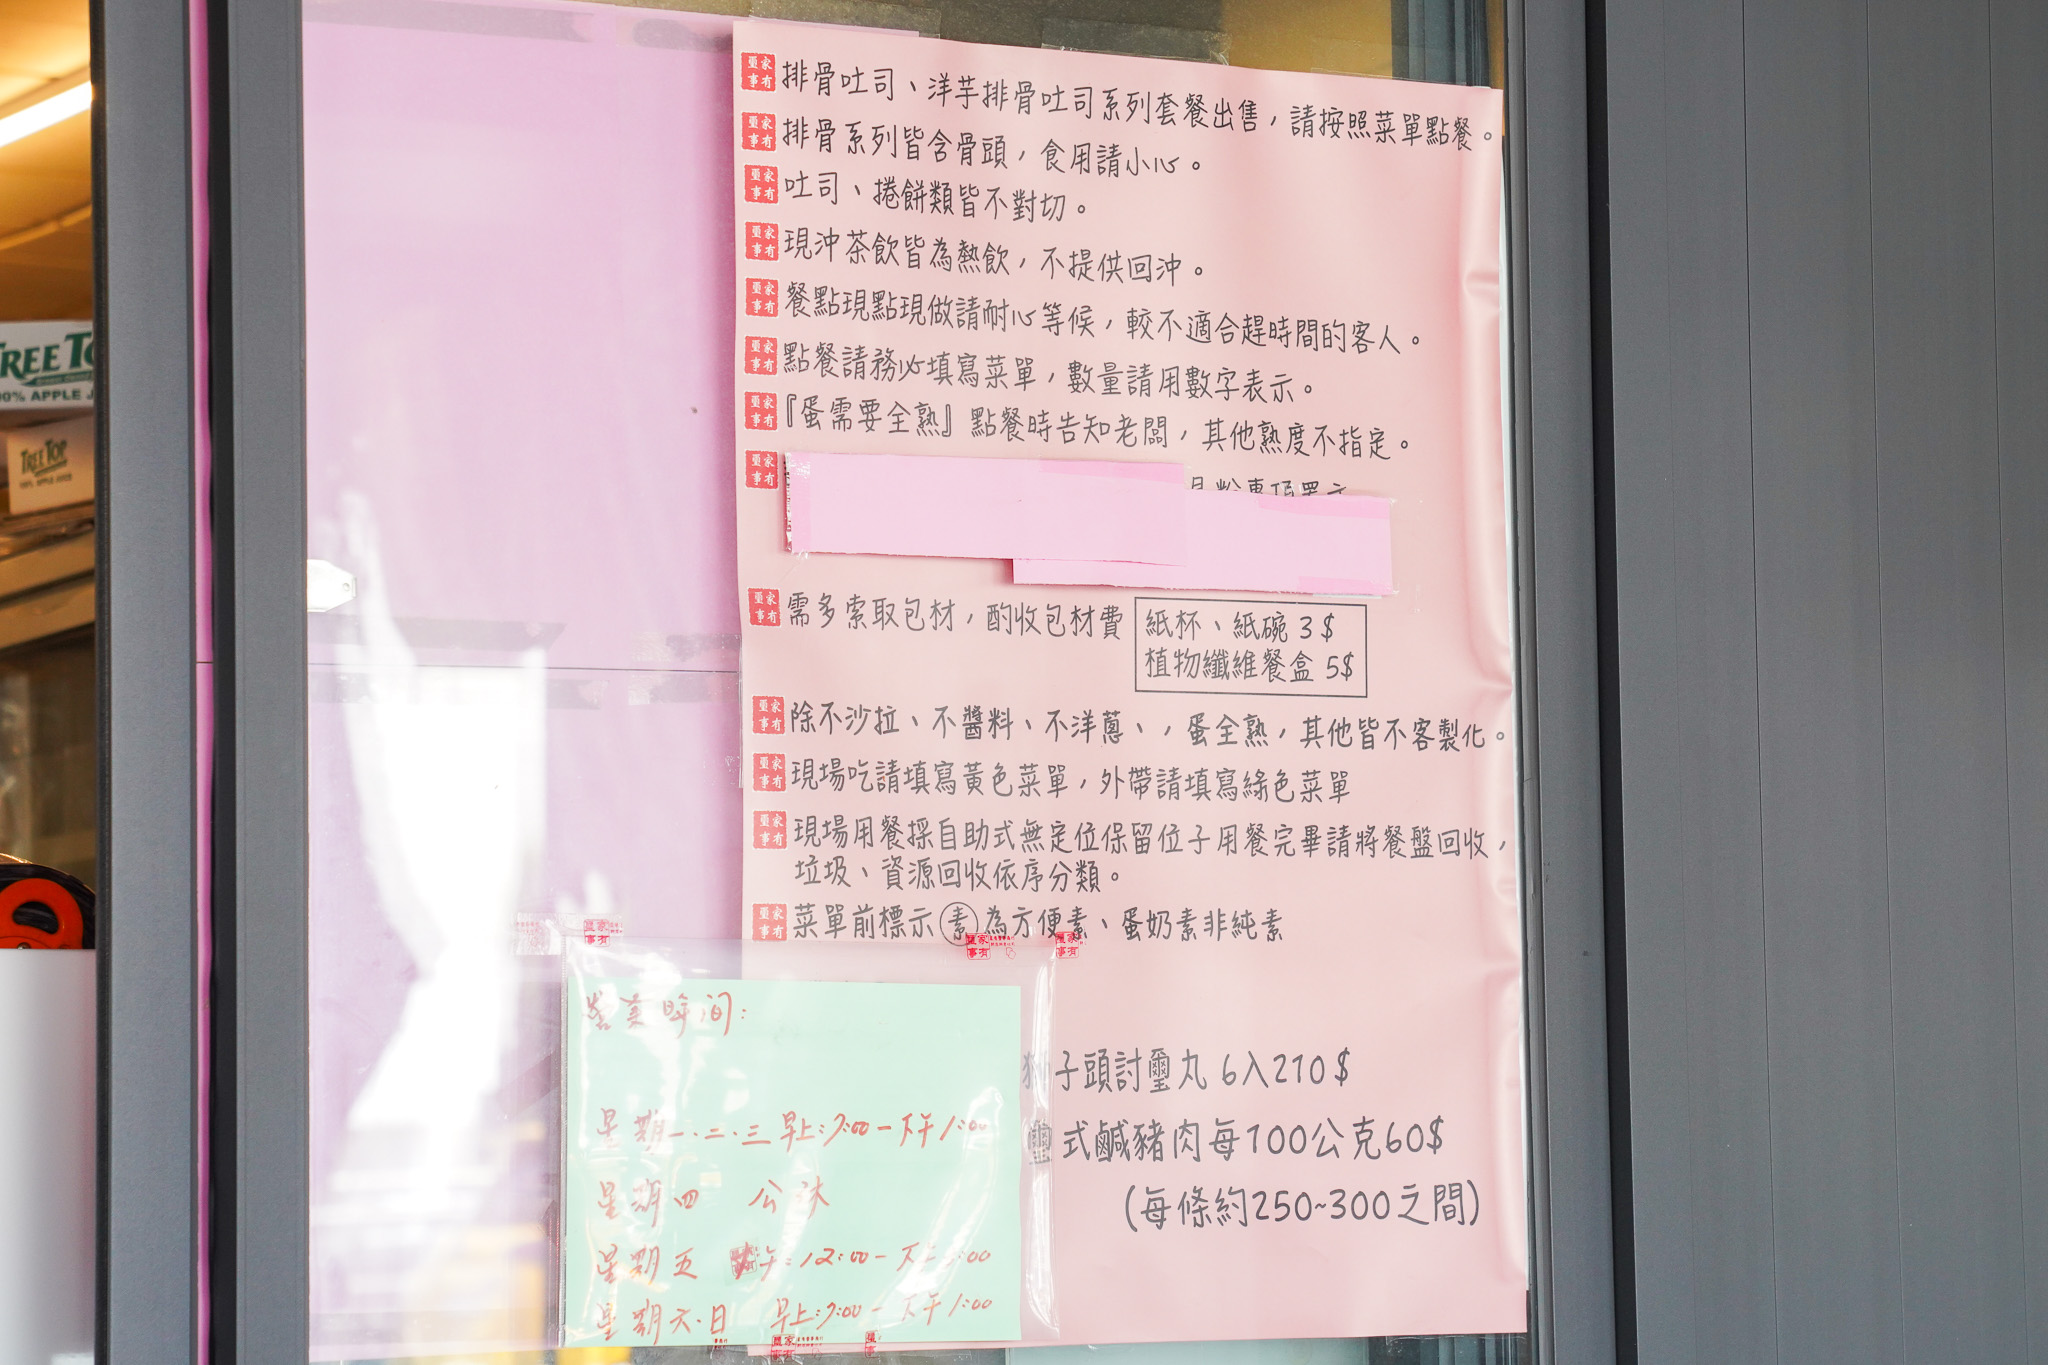 TREE TO
100% APPLE J
TREE TOP
排骨吐司、洋芋排骨吐司系列套餐出售，請按照菜單點餐。
排骨系列皆含骨頭，食用請小心。
吐司、捲餅類皆不對切。
現沖茶飲皆為熱飲，不提供回沖。
餐點現點現做請耐心等候，較不適合趕時間的客人。
點餐請務必填寫菜單，數量請用數字表示。
『蛋需要全熟』點餐時告知老闆，其他熟度不指定。
需多索取包材，酌收包材費
紙杯、紙碗 3$
植物纖維餐盒 5$
除不沙拉、不醬料、不洋蔥、，蛋全熟，其他皆不客製化。
現場吃請填寫黃色菜單，外帶請填寫綠色菜單
現場用餐採自助式無定位保留位子用餐完畢請將餐盤回收，
垃圾、資源回收依序分類。
菜單前標示素為方便素、蛋奶素非純素
獅子頭討璽丸 6入210$
璽式鹹豬肉每100公克60$
(每條約250~300之間)
营業時间：
星期一.二.三 早上:9:00-下午1:00
星期四 公休
星期五 午:12:00-下午:00
星期六.日 早上:9:00-下午1:00